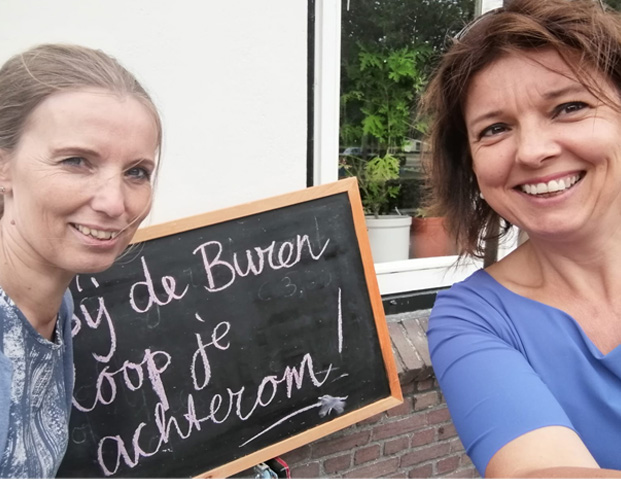 Bij de Buren
loop je
achterom!